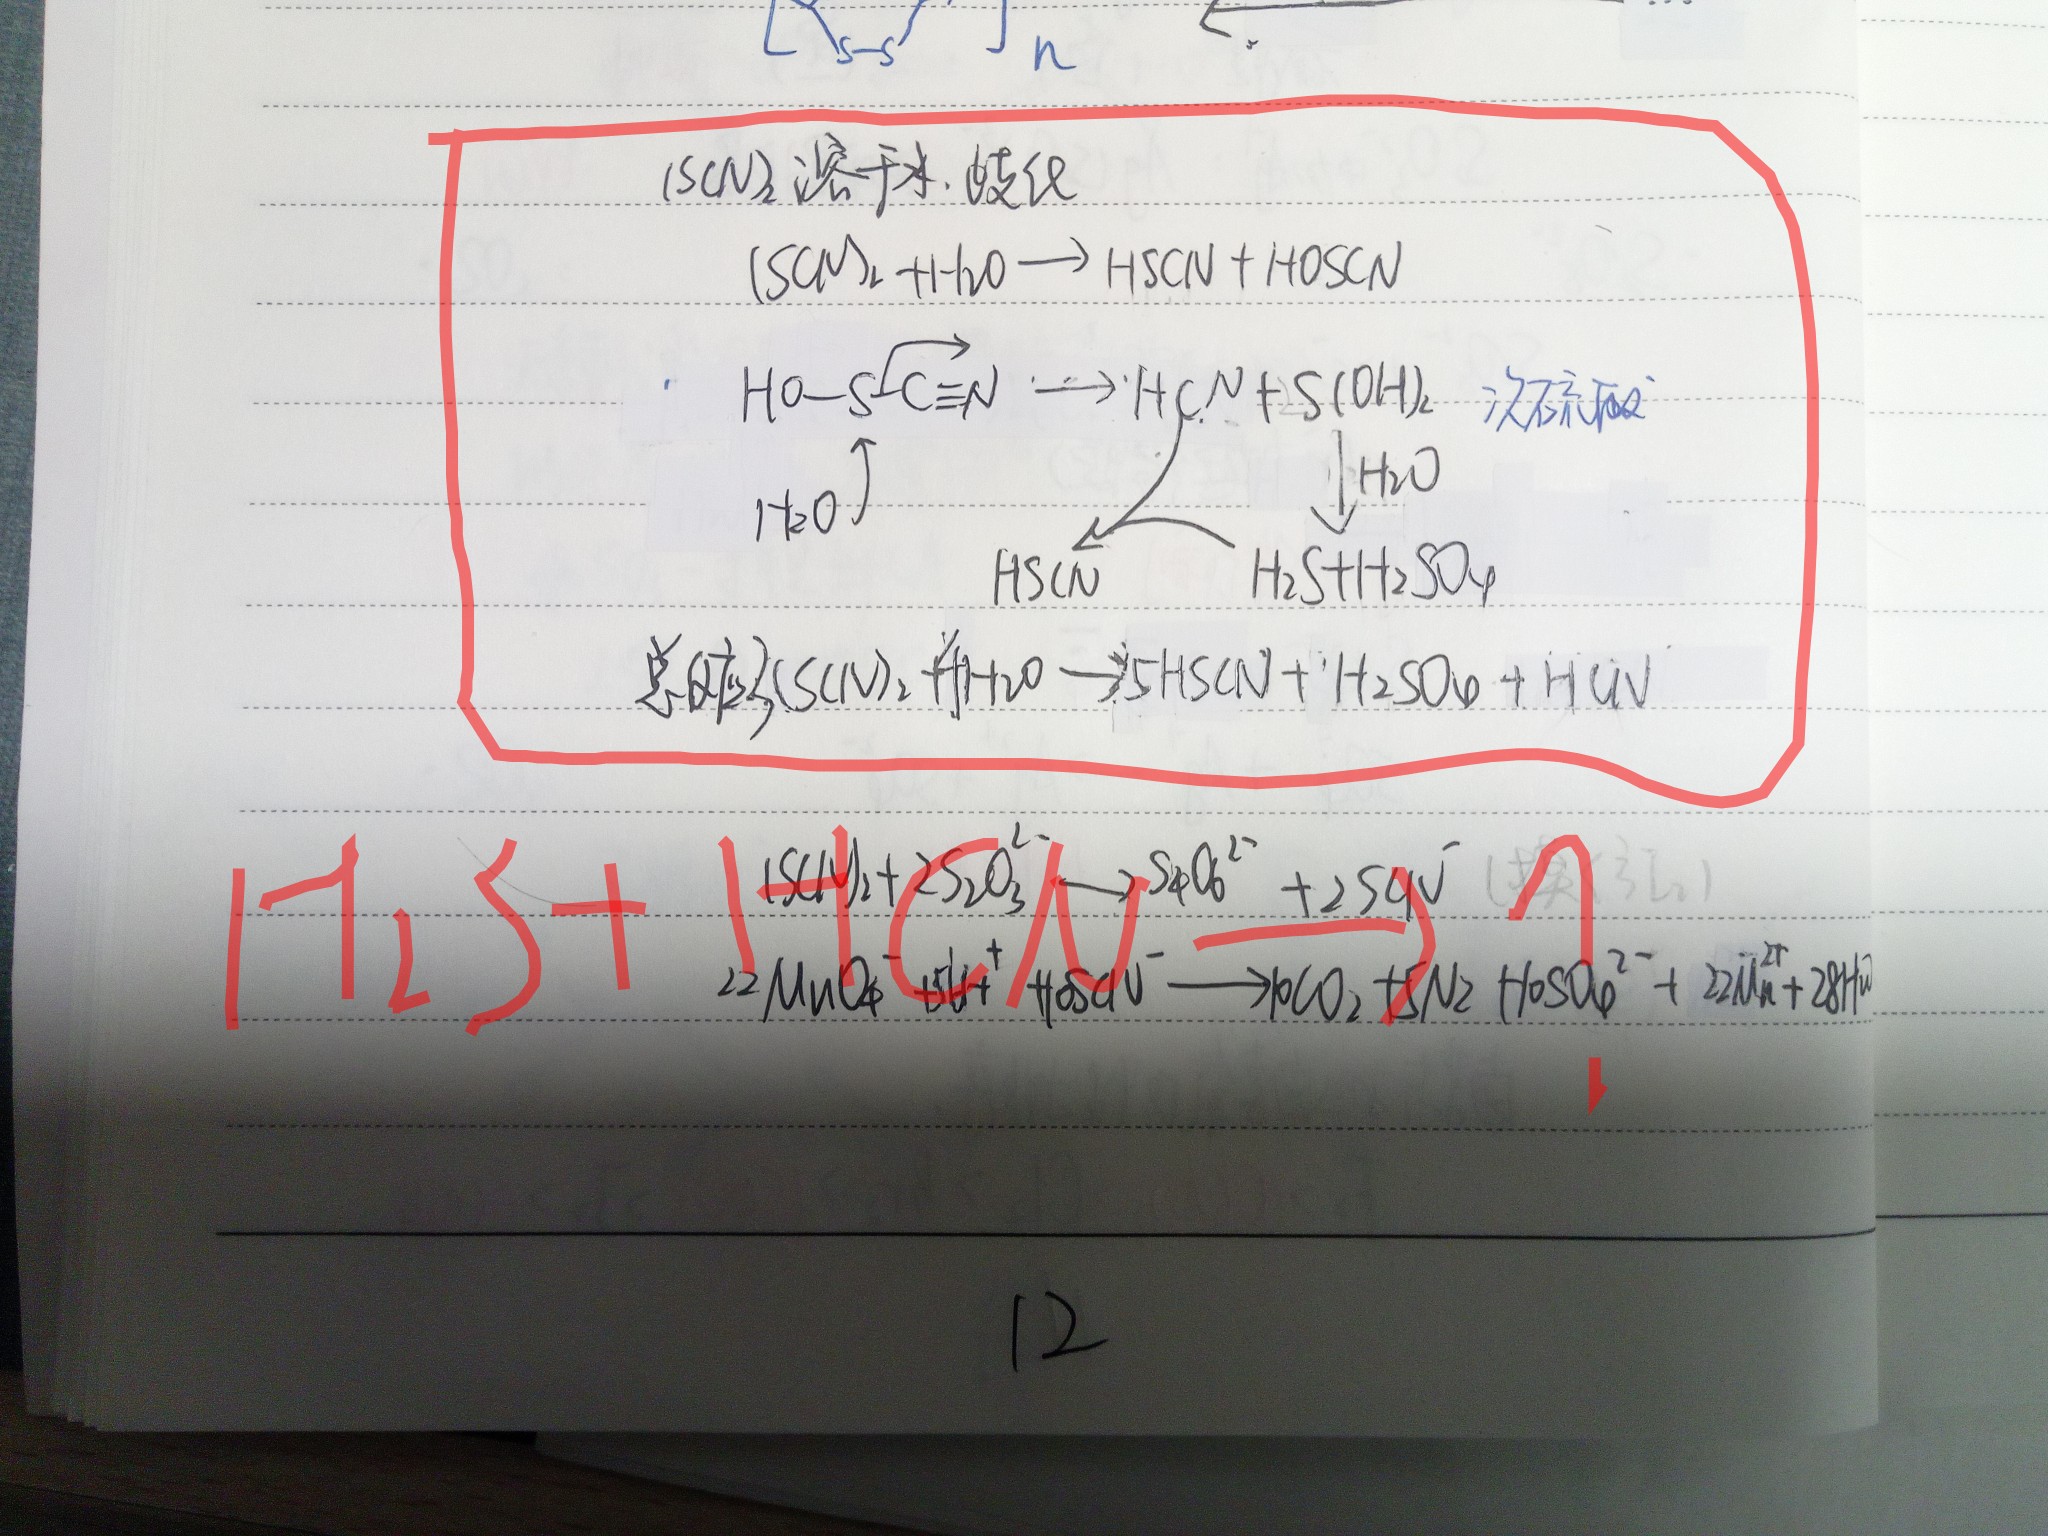 S-S n
(SCN)₂溶于水.歧化
(SCN)₂+H₂O→HSCN+HOSCN
HO-S-C≡N→HCN+S(OH)₂ 次硫酸
H₂O H₂O
HSCN H₂S+H₂SO₄
总反应3(SCN)₂+4H₂O→5HSCN+H₂SO₄+HCN
(SCN)₂+2S₂O₃²⁻→S₄O₆²⁻+2SCN⁻ (类似I₂)
H₂S+HCN→?
22MnO₄⁻+ H⁺+10SCN⁻→10CO₂+5N₂+10SO₄²⁻+22Mn²⁺+28H₂O
12